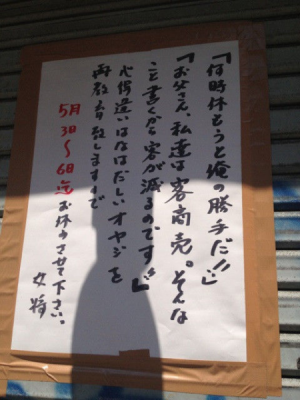 『何時休もうと俺の勝手だ!!』
『お父さん、私達は客商売。そんな
こと書くから客が減るのです!!』
心得違いはなはだしいオヤジを
再教育致しますので
5月3日〜6日迄お休みさせて下さい。
女将